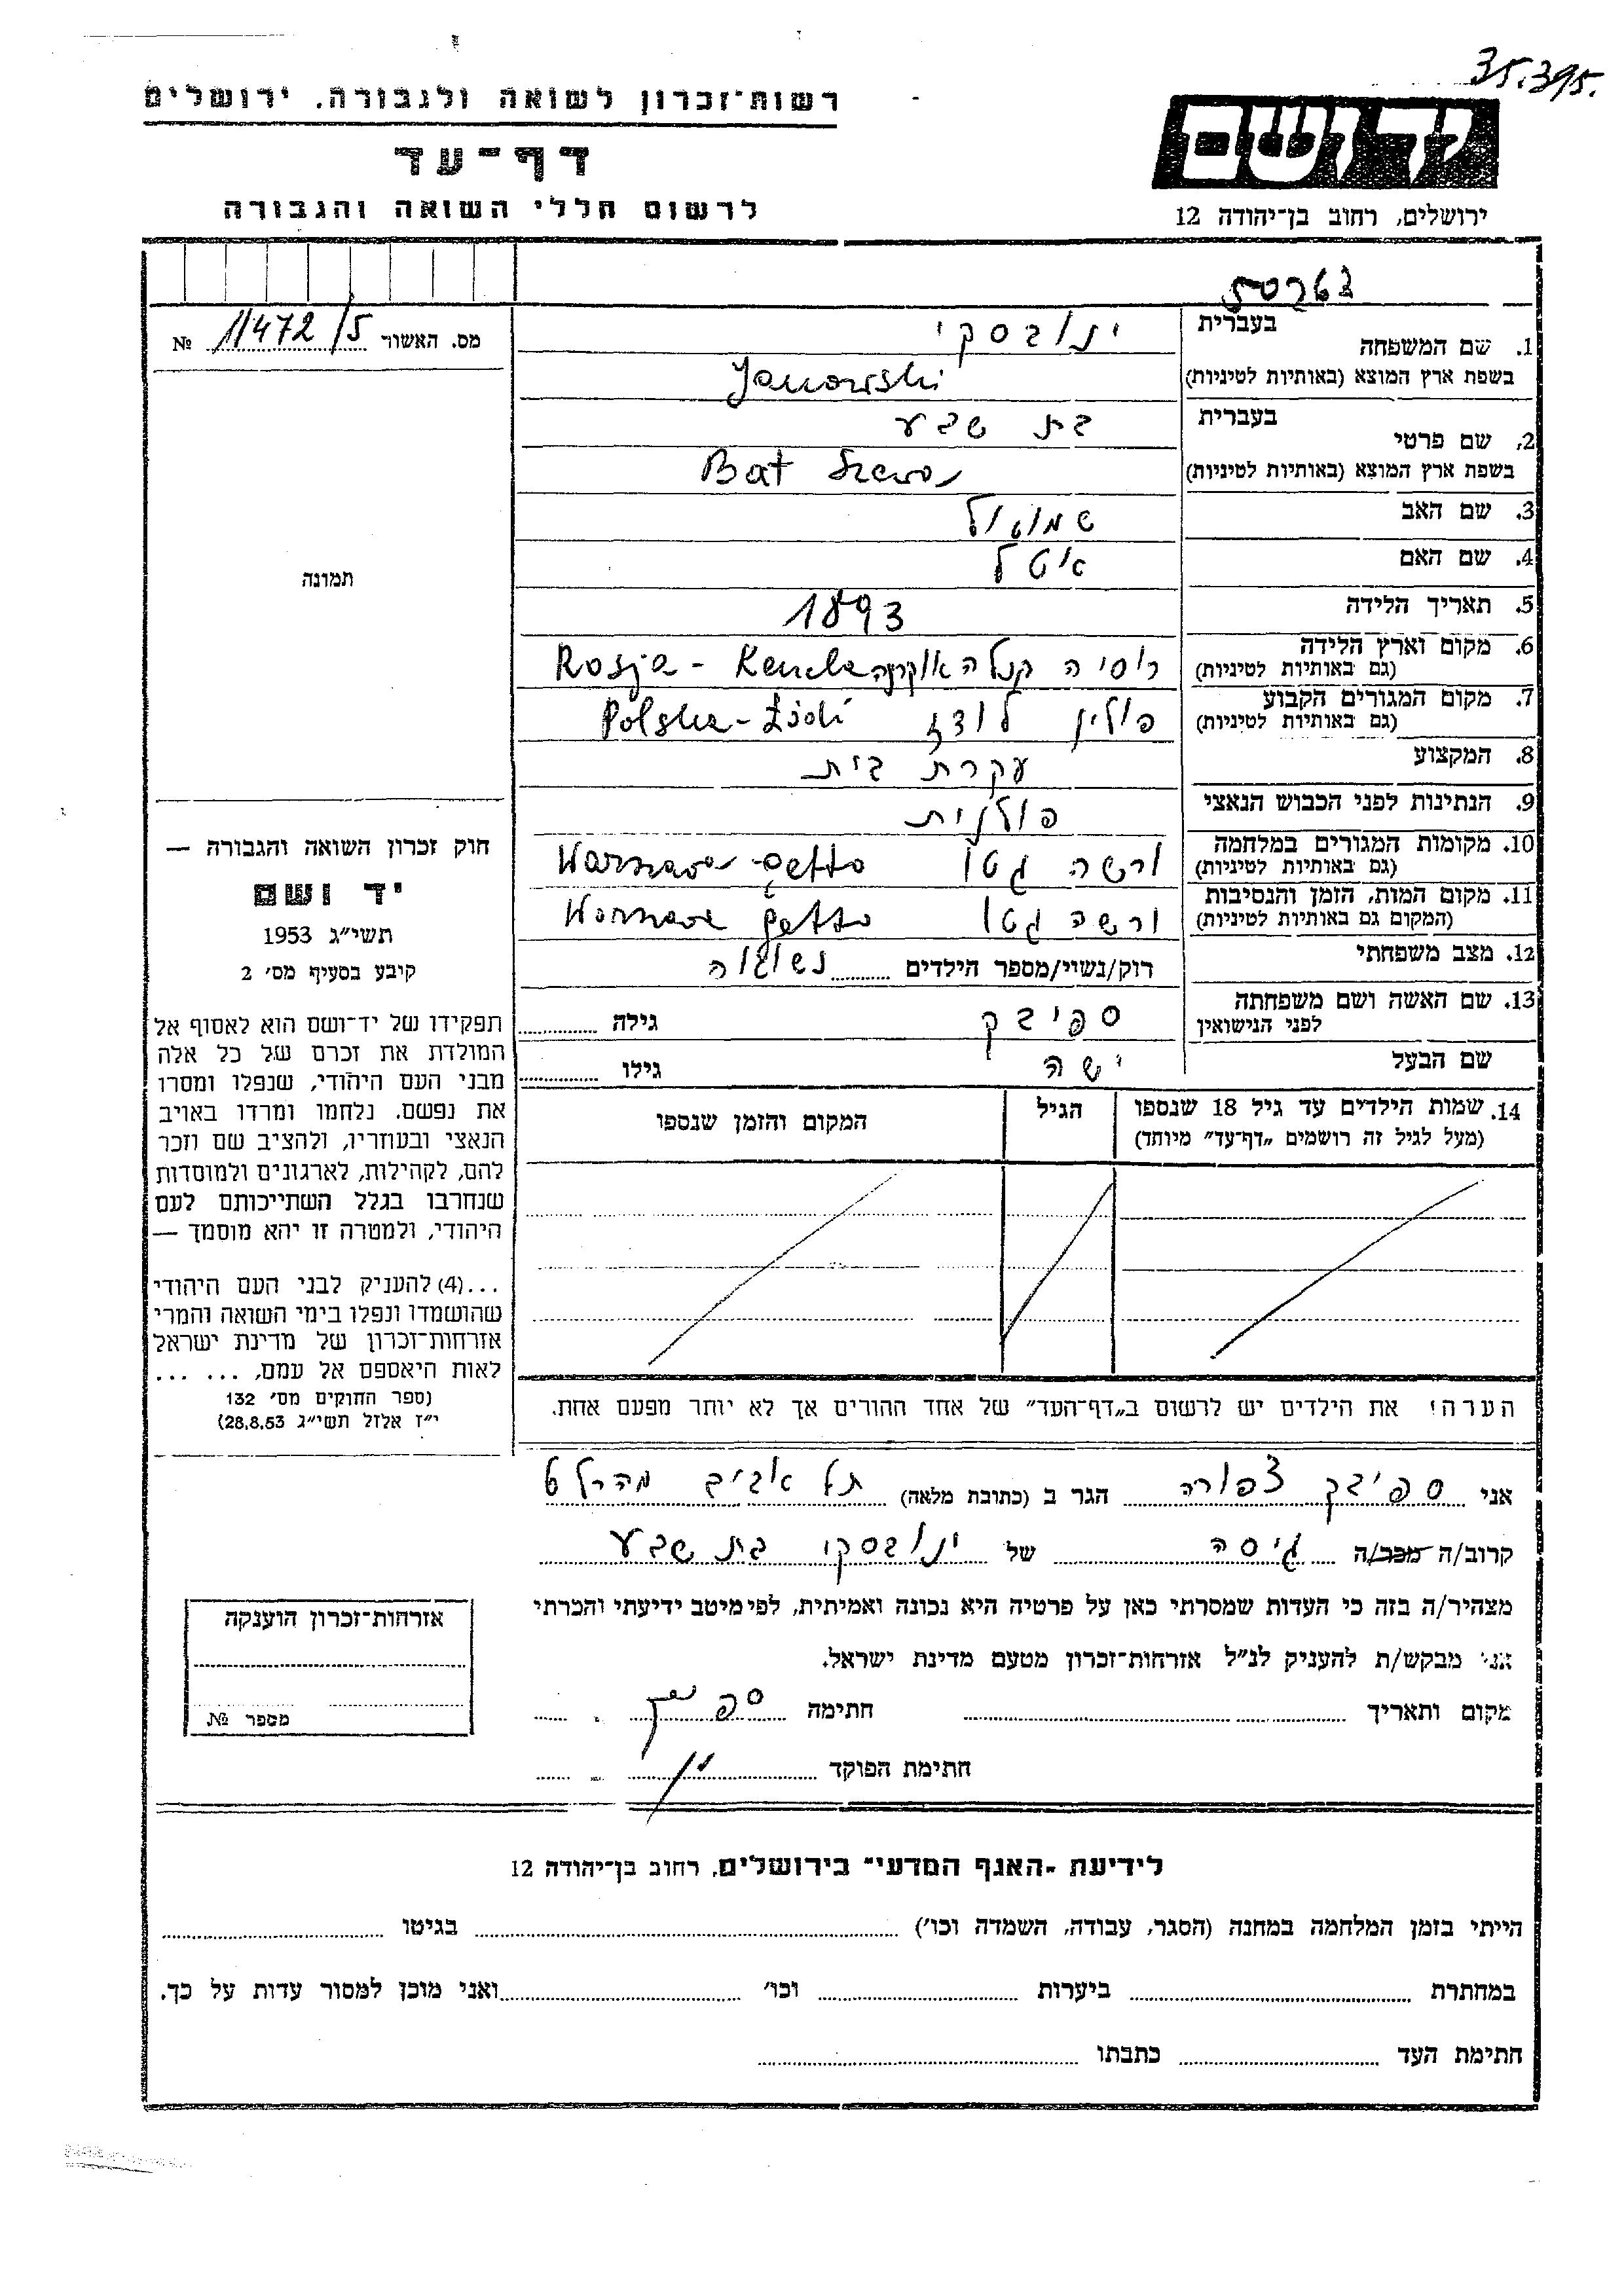 35.395.
רשות־זכרון לשואה ולגבורה, ירושלים
דף־עד
לרשום חללי השואה והגבורה
יד ושם
ירושלים, רחוב בן־יהודה 12
מס. האשור 11472/5 №
1. שם המשפחה
בעברית ינובסקי
בשפת ארץ המוצא (באותיות לטיניות) Janowski
2. שם פרטי
בעברית בת שבע
בשפת ארץ המוצא (באותיות לטיניות) Bat Szewa
3. שם האב שמואל
4. שם האם איטל
5. תאריך הלידה 1893
6. מקום וארץ הלידה
(גם באותיות לטיניות) רוסיה Rosja -
7. מקום המגורים הקבוע
(גם באותיות לטיניות) פולין לודז Polska - Łódź
8. המקצוע עקרת בית
9. הנתינות לפני הכבוש הנאצי פולנית
10. מקומות המגורים במלחמה
(גם באותיות לטיניות) ורשה גטו Warszawa - getto
11. מקום המות, הזמן והנסיבות
(המקום גם באותיות לטיניות) ורשה גטו Warszawa getto
12. מצב משפחתי רוק/נשוי/מספר הילדים נשואה
13. שם האשה ושם משפחתה
לפני הנישואין ספיבק גילה
שם הבעל ישה גילו
14. שמות הילדים עד גיל 18 שנספו
(מעל לגיל זה רושמים „דף־עד” מיוחד)
הגיל
המקום והזמן שנספו
הערה! את הילדים יש לרשום ב„דף־העד” של אחד ההורים אך לא יותר מפעם אחת.
תמונה
חוק זכרון השואה והגבורה —
יד ושם
תשי״ג 1953
קיבע בסעיף מס׳ 2
תפקידו של יד־ושם הוא לאסוף אל
המולדת את זכרם של כל אלה
מבני העם היהודי, שנפלו ומסרו
את נפשם, נלחמו ומרדו באויב
הנאצי ובעוזריו, ולהציב שם וזכר
להם, לקהילות, לארגונים ולמוסדות
שנחרבו בגלל השתייכותם לעם
היהודי, ולמטרה זו יהא מוסמך —
...(4) להעניק לבני העם היהודי
שהושמדו ונפלו בימי השואה והמרי
אזרחות־זכרון של מדינת ישראל
לאות היאספם אל עמם, ... ...
(ספר החוקים מס׳ 132
י״ז אלול תשי״ג 28.8.53)
אני ספיבק צפורה הגר ב (כתובת מלאה) תל אביב
קרוב/ה מכר/ה גיסה של ינובסקי בת שבע
מצהיר/ה בזה כי העדות שמסרתי כאן על פרטיה היא נכונה ואמיתית, לפי מיטב ידיעתי והכרתי
אני מבקש/ת להעניק לנ״ל אזרחות־זכרון מטעם מדינת ישראל.
מקום ותאריך חתימה ספיבק
חתימת הפוקד
אזרחות־זכרון הוענקה
מספר №
לידיעת „האגף המדעי” בירושלים, רחוב בן־יהודה 12
הייתי בזמן המלחמה במחנה (הסגר, עבודה, השמדה וכו׳) בגיטו
במחתרת ביערות וכו׳ ואני מוכן למסור עדות על כך.
חתימת העד כתבתו